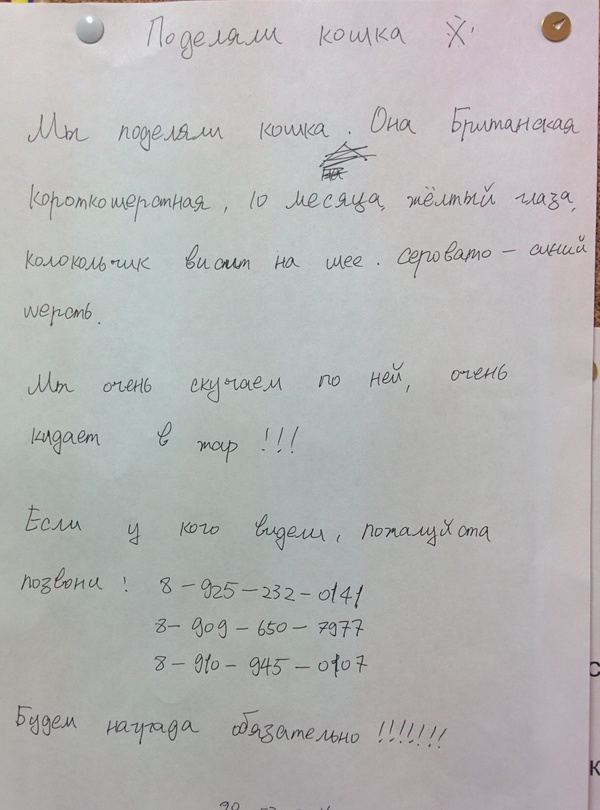 Поделяли кошка
Мы поделяли кошка. Она Британская
Короткошерстная, 10 месяца, жёлтый глаза,
колокольчик висит на шее. серовато - синий
шерсть.
Мы очень скучаем по ней, очень
кидает в жар !!!
Если у кого видели, пожалуйста
позвони : 8-925-232-0141
8-909-650-7977
8-910-945-0107
Будем награда обязательно !!!!!!!